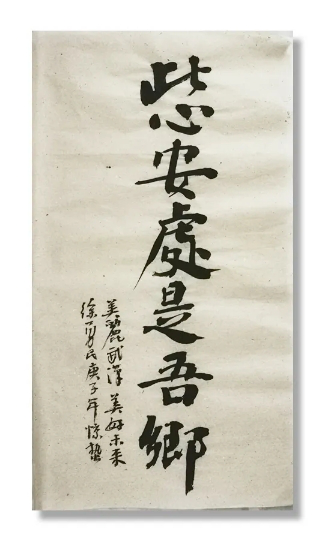 此心安處是吾鄉
美麗武漢 美好未來
徐勇民庚子年惊蟄